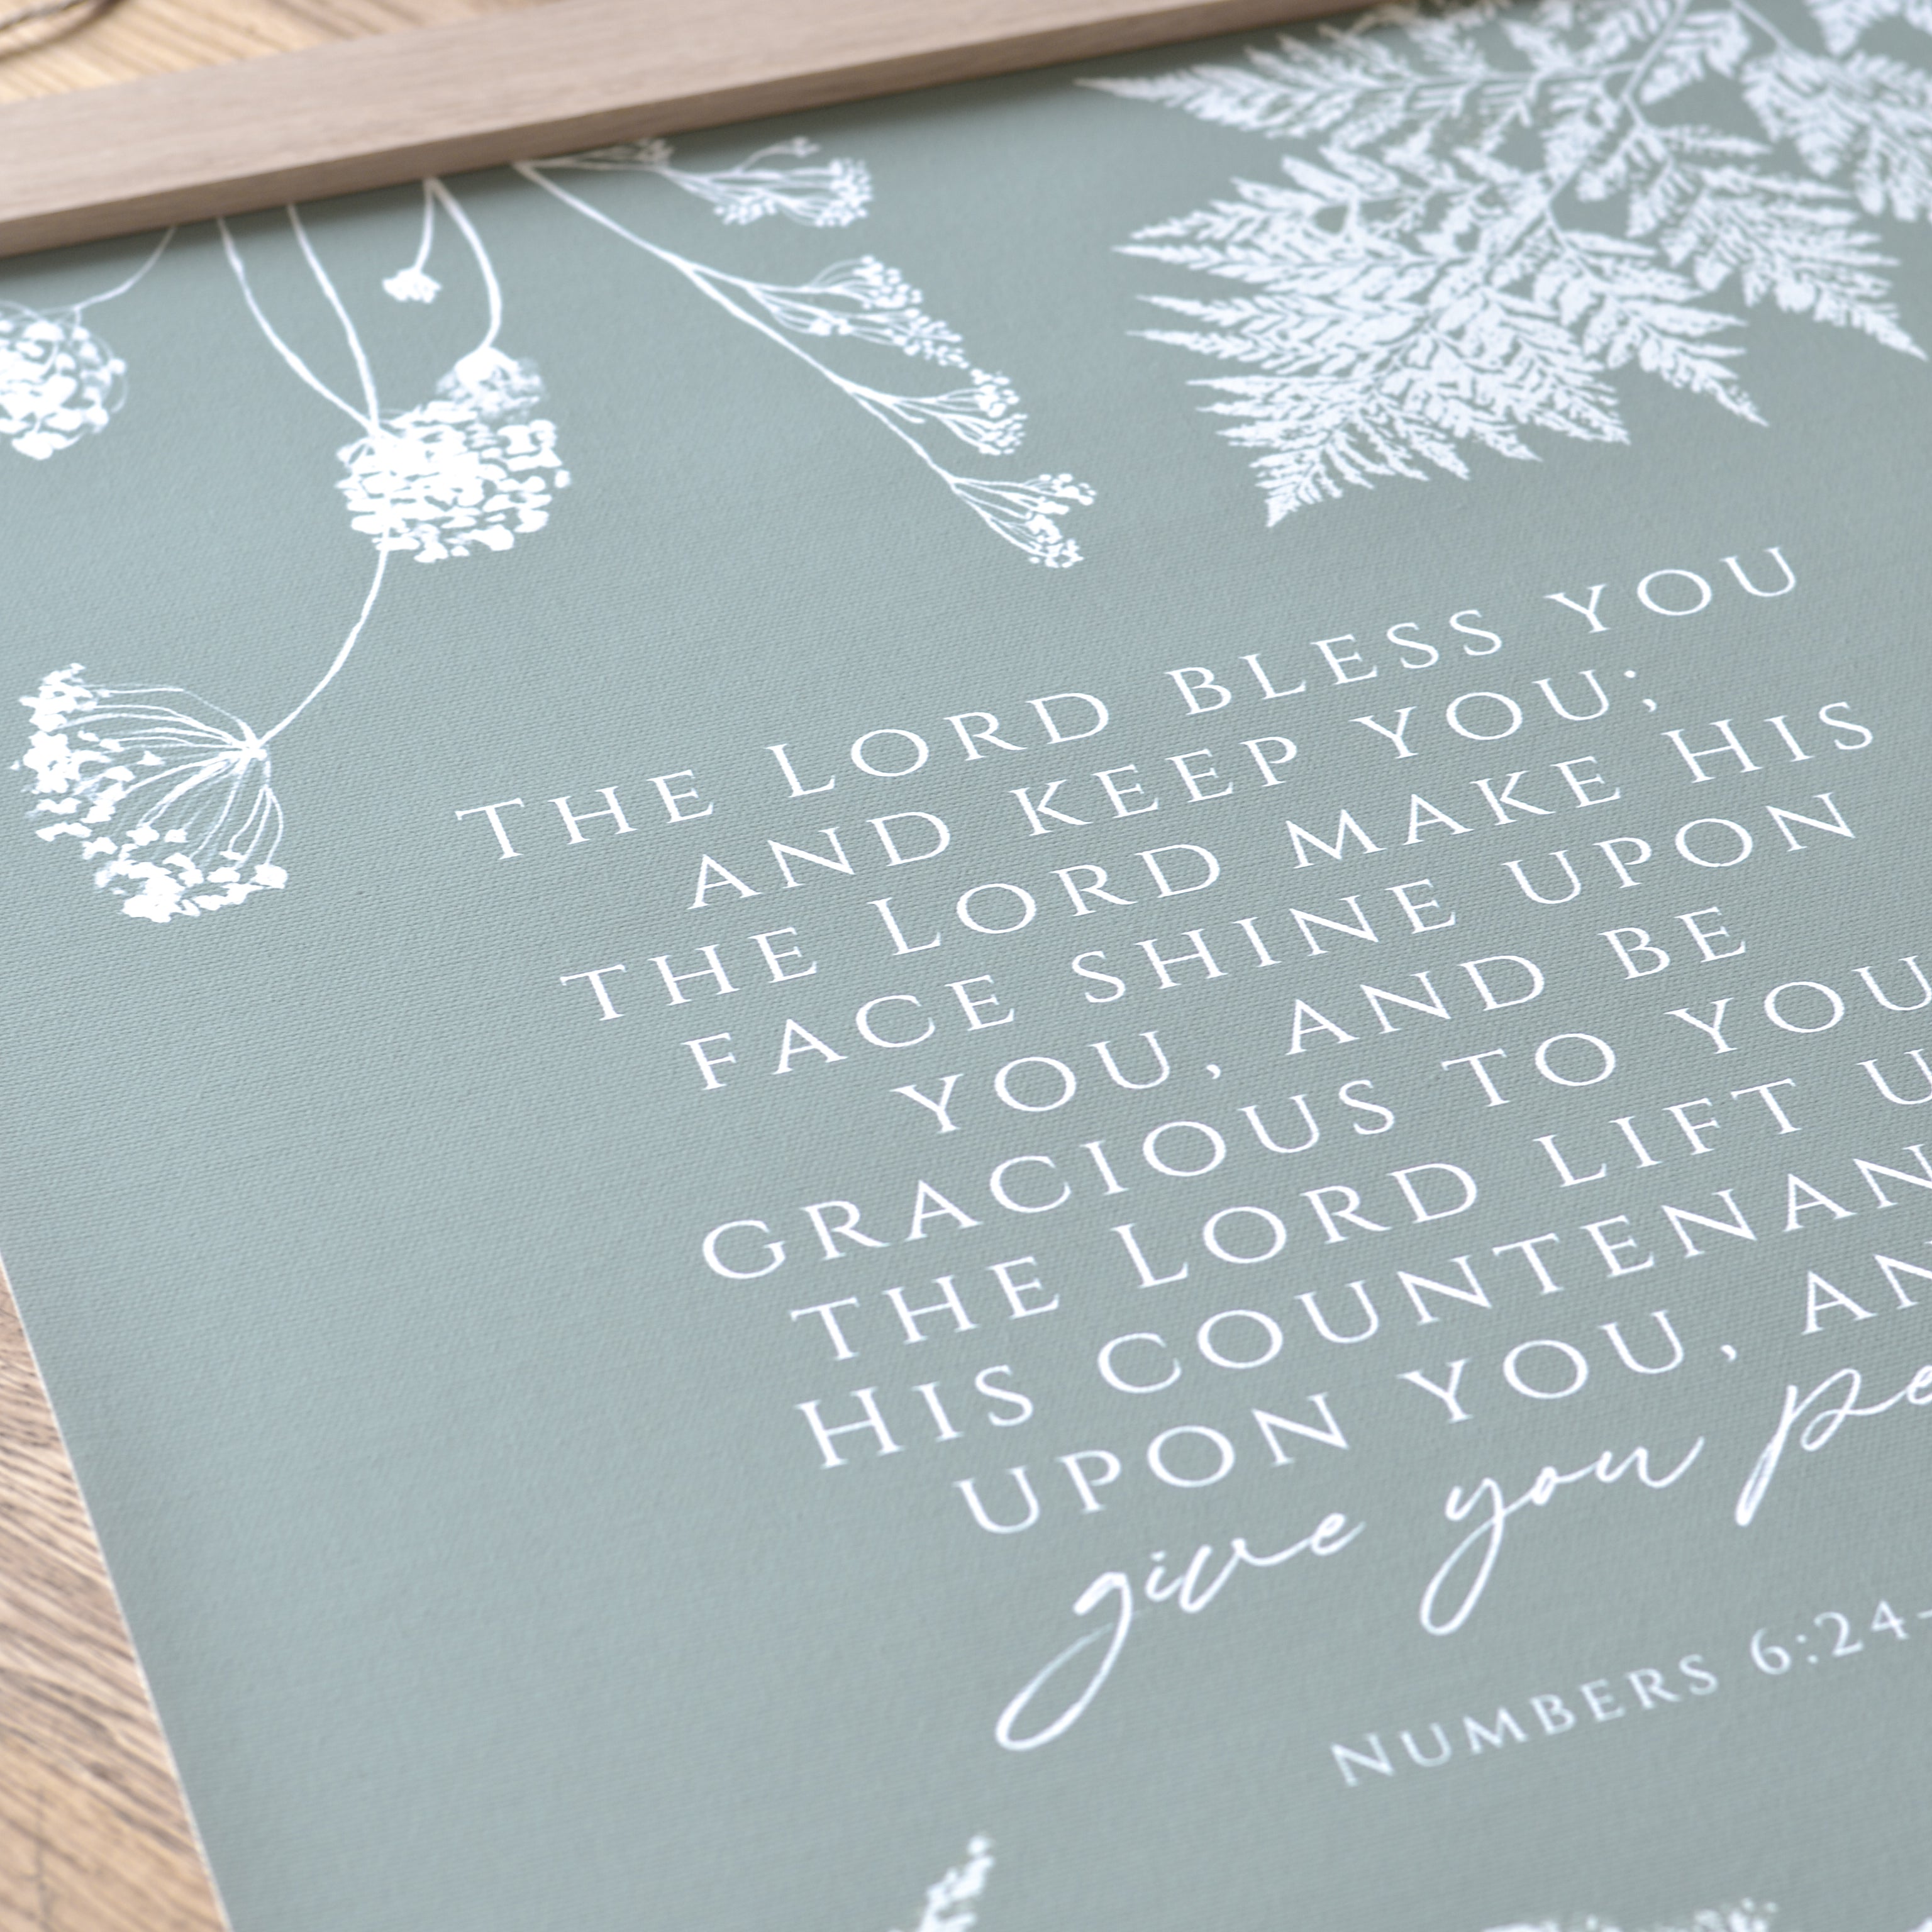 THE LORD BLESS YOU
AND KEEP YOU;
THE LORD MAKE HIS
FACE SHINE UPON
YOU, AND BE
GRACIOUS TO YOU
THE LORD LIFT
HIS
UPON YOU,
give you
NUMBERS 6:24-